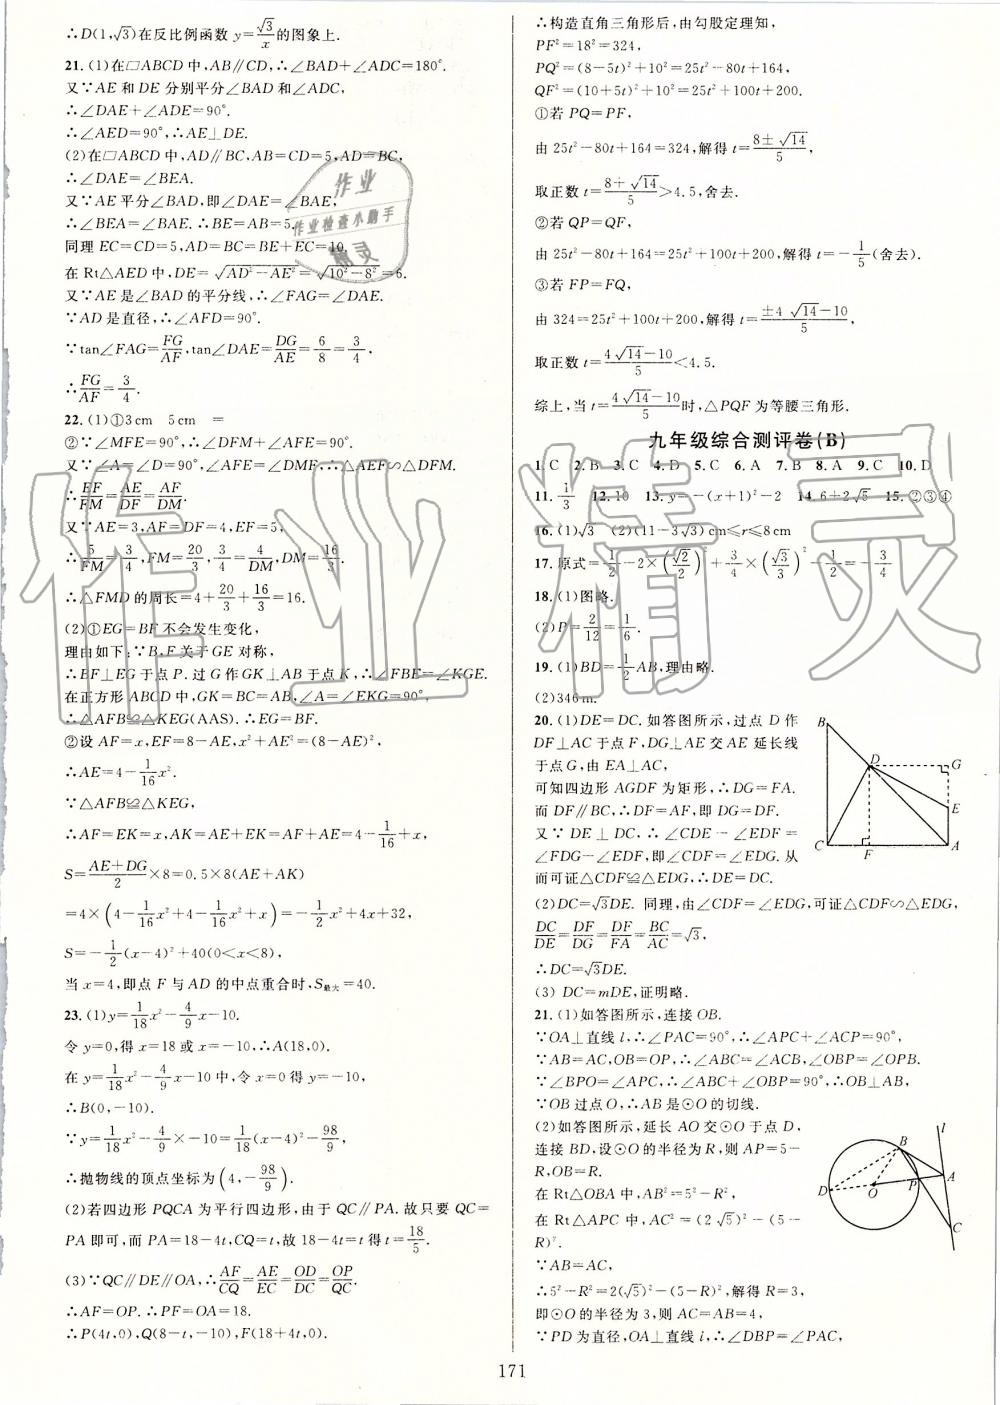 ∴D(1,√3)在反比例函数 y=√3/x的图象上.
21. (1)在□ABCD 中,AB∥CD,∴∠BAD+∠ADC=180°.
又∵AE 和 DE 分别平分∠BAD 和∠ADC,
∴∠DAE+∠ADE=90°.
∴∠AED=90°,∴AE⊥DE.
(2)在□ABCD 中,AD∥BC,AB=CD=5,AD=BC,
∴∠DAE=∠BEA.
又∵AE 平分∠BAD,即∠DAE=∠BAE,
∴∠BEA=∠BAE.∴BE=AB=5.
同理 EC=CD=5,AD=BC=BE+EC=10.
在 Rt△AED 中,DE=√(AD²-AE²)=√(10²-8²)=6.
又∵AE 是∠BAD 的平分线,∴∠FAG=∠DAE.
∵AD 是直径,∴∠AFD=90°.
∵tan∠FAG=FG/AF,tan∠DAE=DG/AE=6/8=3/4,
∴FG/AF=3/4.
22. (1)①3cm 5cm =
②∵∠MFE=90°,∴∠DFM+∠AFE=90°.
又∵∠A=∠D=90°,∠AFE=∠DMF,∴△AEF∽△DFM.
∴EF/FM=AE/DF=AF/DM.
又∵AE=3,AF=DF=4,EF=5,
∴5/FM=3/4,FM=20/3,3/4=4/DM,DM=16/3.
∴△FMD 的周长=4+20/3+16/3=16.
(2)①EG=BF 不会发生变化,
理由如下:∵B、E 关于 GE 对称,
∴BF⊥EG 于点 P.过 G 作 GK⊥AB 于点 K,∴∠FBE=∠KGE.
在正方形 ABCD 中,GK=BC=AB,∠A=∠EKG=90°,
∴△AFB≌△KEG(AAS).∴EG=BF.
②设 AF=x,EF=8-AE,x²+AE²=(8-AE)²,
∴AE=4-1/16x².
∵△AFB≌△KEG,
∴AF=EK=x,AK=AE+EK=AF+AE=4-1/16+x,
S=(AE+DG)/2×8=0.5×8(AE+AK)
=4×(4-1/16x²+4-1/16x²+x)=-1/2x²+4x+32,
S=-1/2(x-4)²+40(0<x<8).
当 x=4,即点 F 与 AD 的中点重合时,S最大=40.
23. (1)y=1/18x²-4/9x-10.
令 y=0,得 x=18 或 x=-10,∴A(18,0).
在 y=1/18x²-4/9x-10 中,令 x=0 得 y=-10,
∴B(0,-10).
∵y=1/18x²-4/9×-10=1/18(x-4)²-98/9,
∴抛物线的顶点坐标为(4,-98/9).
(2)若四边形 PQCA 为平行四边形,由于 QC∥PA. 故只要 QC=
PA 即可,而 PA=18-4t,CQ=t,故 18-4t=t 得 t=18/5.
(3)∵QC∥DE∥OA,∴AF/CQ=AE/EC=OD/DC=OP/QC.
∴AF=OP.∴PF=OA=18.
∴P(4t,0),Q(8-t,-10),F(18+4t,0).
∴构造直角三角形后,由勾股定理知,
PF²=18²=324,
PQ²=(8-5t)²+10²=25t²-80t+164,
QF²=(10+5t)²+10²=25t²+100t+200.
①若 PQ=PF,
由 25t²-80t+164=324,解得 t=(8±√14)/5,
取正数 t=(8+√14)/5>4.5,舍去.
②若 QP=QF,
由 25t²-80t+164=25t²+100t+200,解得 t=-1/5(舍去).
③若 FP=FQ,
由 324=25t²+100t+200,解得 t=(±4√14-10)/5,
取正数 t=(4√14-10)/5<4.5.
综上,当 t=(4√14-10)/5时,△PQF 为等腰三角形.
九年级综合测评卷(B)
1. C 2. B 3. C 4. D 5. C 6. A 7. B 8. A 9. C 10. D
11. 1/3 12. 10 13. y=-(x+1)²-2 14. 6+2√5 15. ②③④
16. (1)√3 (2)(11-3√3)cm≤r≤8cm
17. 原式=1/2-2×(√2/2)²+3/4×(√3/3)²-1/2=-3/4
18. (1)图略.
(2)P=2/12=1/6.
19. (1)BD=1/2AB,理由略.
(2)346m.
20. (1)DE=DC. 如答图所示,过点 D 作
DF⊥AC 于点 F,DG⊥AE 交 AE 延长线
于点 G,由 EA⊥AC,
可知四边形 AGDF 为矩形,∴DG=FA.
而 DF∥BC,∴DF=AF,即 DG=DF.
又∵ DE⊥DC,∴∠CDE-∠EDF=
∠FDG-∠EDF,即∠CDF=∠EDG. 从
而可证△CDF≌△EDG,∴DE=DC.
(2)DC=√3DE. 同理,由∠CDF=∠EDG,可证△CDF∽△EDG,
DC/DE=DF/DG=DF/FA=BC/AC=√3,
∴DC=√3DE.
(3) DC=mDE,证明略.
21. (1)如答图所示,连接 OB.
∵OA⊥直线 l,∴∠PAC=90°,∴∠APC+∠ACP=90°.
∵AB=AC,OB=OP,∴∠ABC=∠ACB,∠OBP=∠OPB.
∵∠BPO=∠APC,∴∠ABC+∠OBP=90°,∴OB⊥AB,
∵OB 过点 O,∴AB 是⊙O 的切线.
(2)如答图所示,延长 AO交⊙O 于点 D,
连接 BD,设⊙O 的半径为 R,则 AP=5-
R,OB=R.
在 Rt△OBA 中,AB²=5²-R²,
在 Rt△APC 中,AC²=(2√5)²-(5-
R)².
∵AB=AC,
∴5²-R²=2(√5)²-(5-R)²,解得 R=3,
即⊙O 的半径为 3,则 AC=AB=4,
∵PD 为直径,OA⊥直线 l,∴∠DBP=∠PAC,
B
D
G
E
C
F
A
l
B
P
A
D
O
C
171
作业
作业检查小助手
精灵
作业精灵